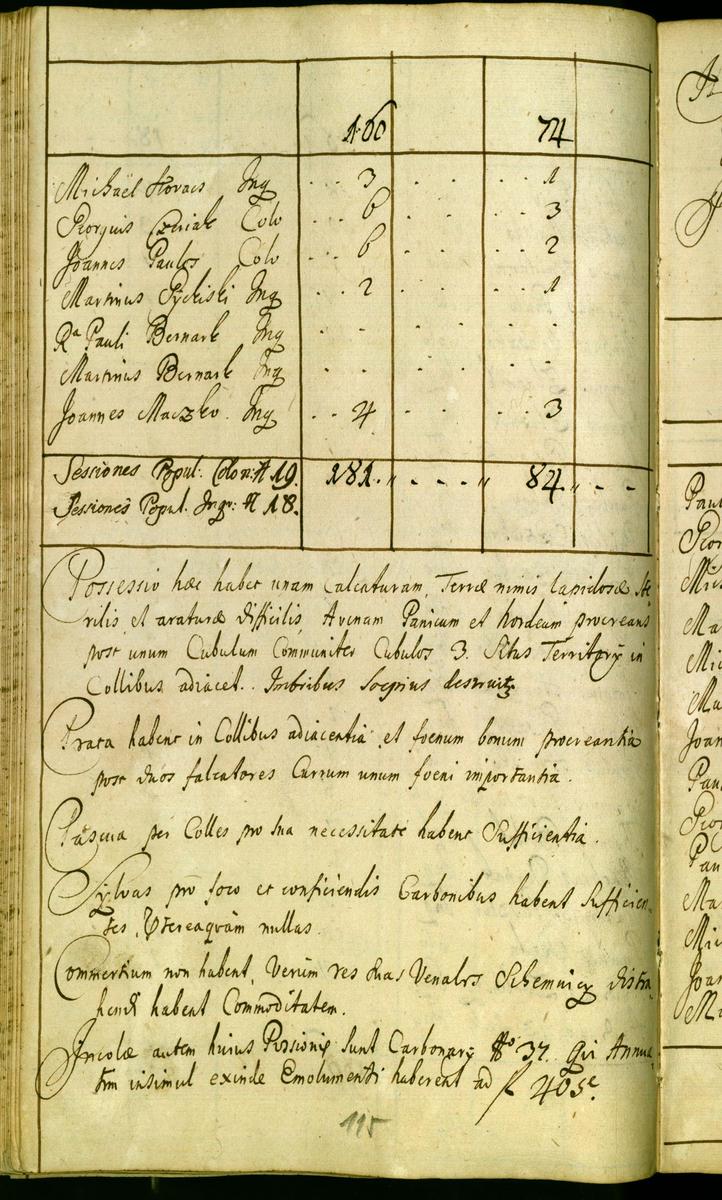 160 74
Michaël Kovacs Inq .. 3 . . 1
Georgius Colo .. 6 . . 3
Joannes Paulos Colo .. 6 . . 2
Martinus Inq .. 2 . . 1
Ra Pauli Bernark Inq . . . . .
Martinus Bernark Inq . . . . .
Joannes Maczko. Inq .. 4 . . 3
Sessiones Popul: Colon: N 19. 181. „ - - - „ 84 „ - -
Sessiones Popul. Inqu: N 18.
Possessio hæc habet unam Calcaturam, Terræ nimis lapidosæ ste
rilis et araturæ difficilis, Avenam Panicum et hordeum procreans
post unum Cubulum Communiter Cubulos 3. Situs Territorij in
Collibus adiacet. Imbribus Soepius destruitr
Prata habent in Collibus adiacentia et foenum bonum procreantia
post duos falcatores Currum unum foeni importantia.
Pascua per Colles pro sua necessitate habent Sufficientia.
Sylvas pro foco et conficiendis Carbonibus habent Sufficien
tes, nullas.
Commertium non habent, Verum res suas Venales Schemnicij distra
hendi habent Commoditatem.
Incolæ autem huius Possionis sunt Carbonarij No 37. Qui Annua
tim insimul exinde Emolumenti haberent ad f 405
115
Pau
Geor
Mic
Ma
Mic
Ma
Joan
Pau
Geo
Pau
Ma
Mic
Joan
M